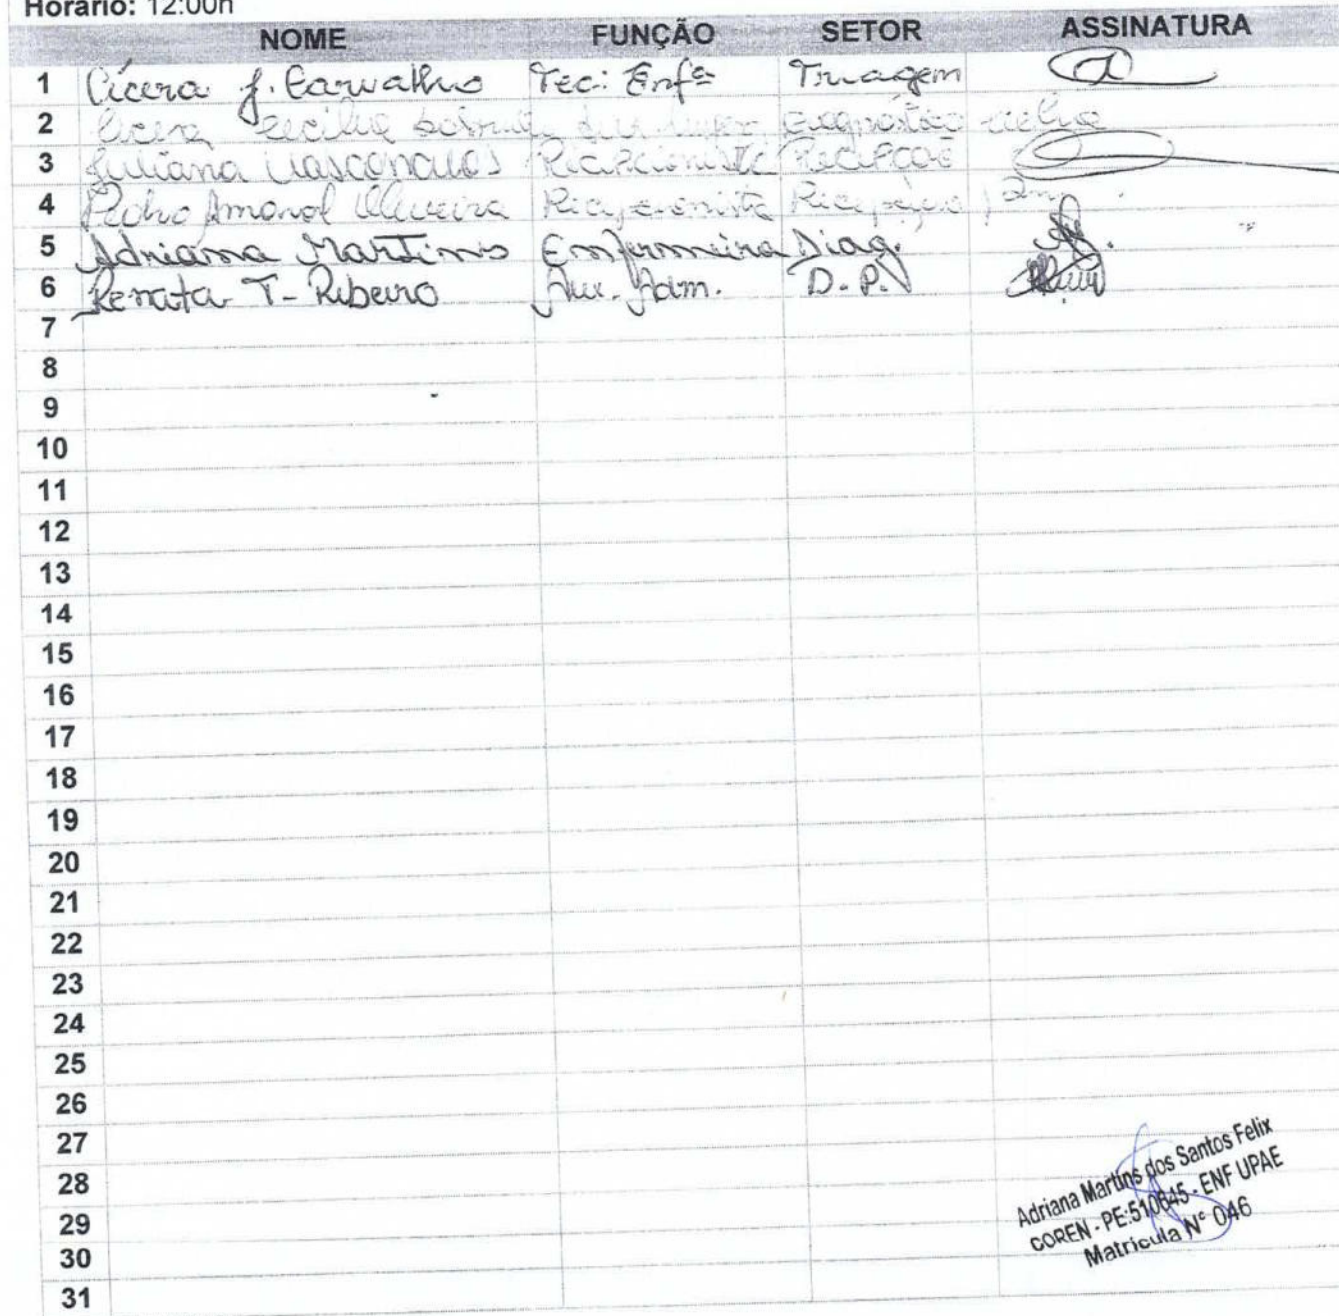 Horário: 12:00h
NOME FUNÇÃO SETOR ASSINATURA
1 Cícera J. Carvalho Tec: Enfª Triagem
2 Cicera Cecilia
3 Juliana Vasconcelos Recepcionista Recepção
4 Pedro Amaral Oliveira Recepcionista Recepção
5 Adriana Martins Enfermeira Diag.
6 Renata T- Ribeiro Aux. Adm. D.P.
7
8
9
10
11
12
13
14
15
16
17
18
19
20
21
22
23
24
25
26
27
28
29
30
31
Adriana Martins dos Santos Felix
COREN - PE:510645 - ENF UPAE
Matricula N° 046